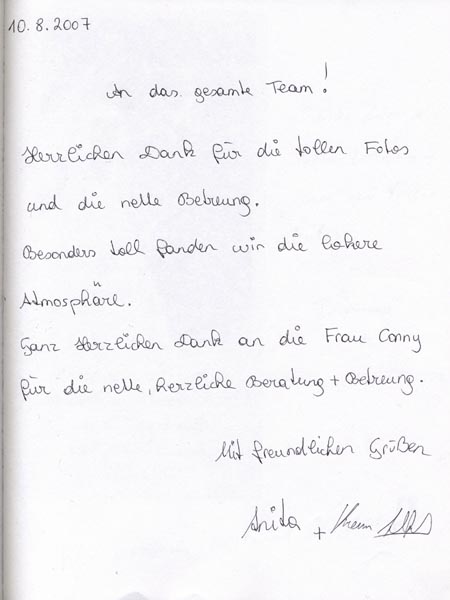 10.8.2007
An das gesamte Team!
Herzlichen Dank für die tollen Fotos
und die nette Betreung.
Besonders toll fanden wir die lockere
Atmosphäre.
Ganz Herzlichen Dank an die Frau Conny
für die nette, herzliche Beratung + Betreung.
Mit freundlichen Grüßen
Anita +